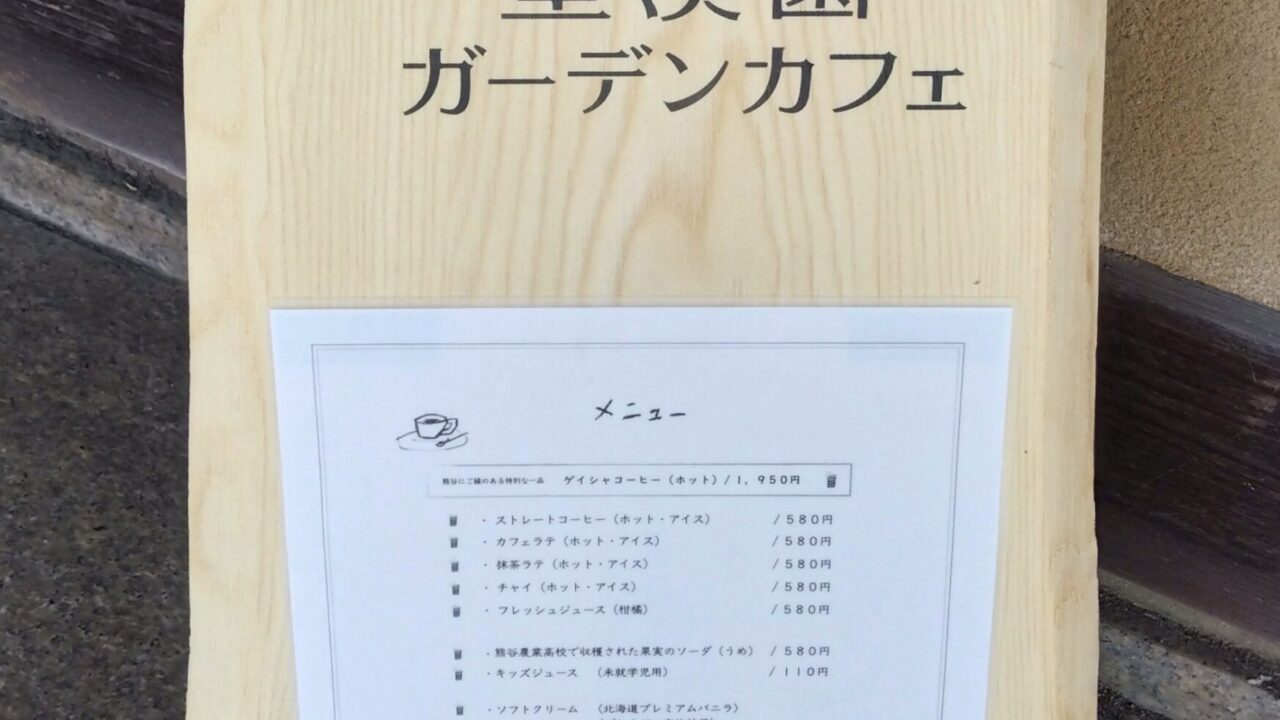 ガーデンカフェ
メニュー
熊谷にご縁のある特別な一品 ゲイシャコーヒー(ホット)/1,950円
・ストレートコーヒー(ホット・アイス) /580円
・カフェラテ(ホット・アイス) /580円
・抹茶ラテ(ホット・アイス) /580円
・チャイ(ホット・アイス) /580円
・フレッシュジュース(柑橘) /580円
・熊谷農業高校で収穫された果実のソーダ(うめ) /580円
・キッズジュース (未就学児用) /110円
・ソフトクリーム (北海道プレミアムバニラ)